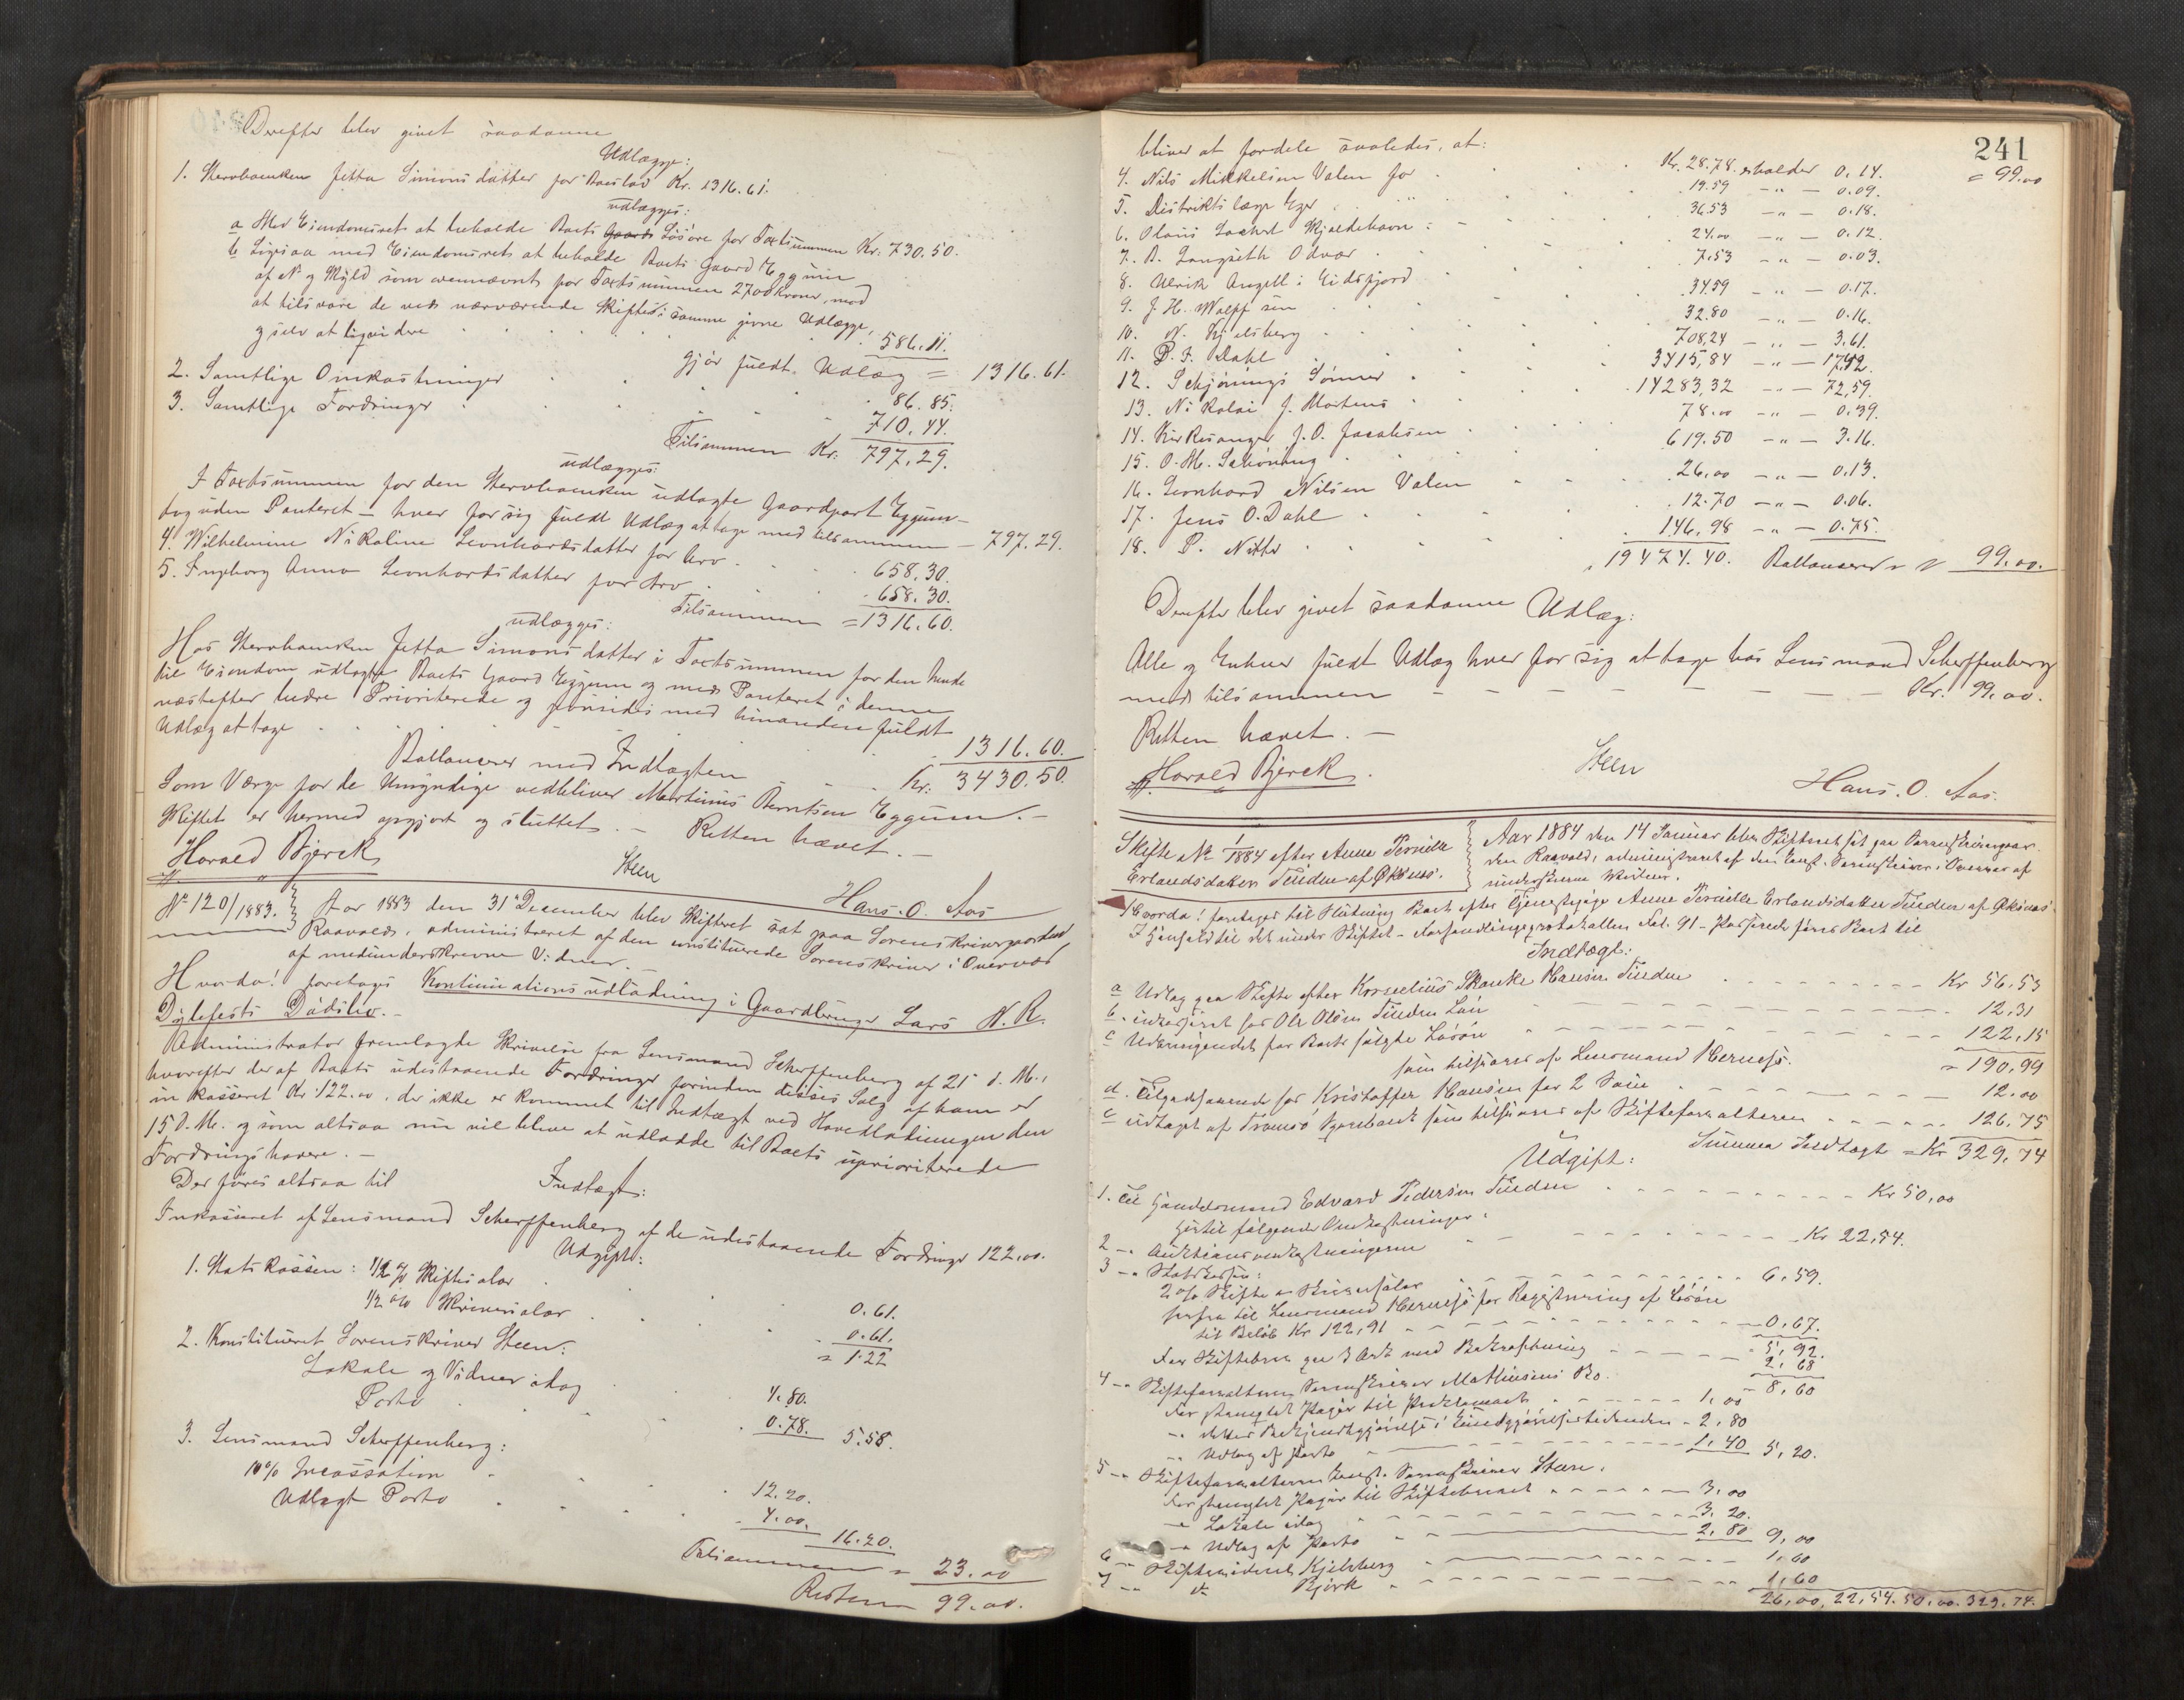 Derefter blev givet saadanne
Udlægge:
1. Stervboenken Jetta Simonsdatter for Boeslod Kr. 1316.61.
udlægges:
a Med Eiendomsret at beholde Boets Gaards Løsøre for Taxtsummen Kr. 730.50.
b Ligesaa med Eiendomsret at beholde Boets Gaard Eggum
af No og Skyld som ovennævnt for Taxtsummen 2700 Kroner, mod
at tilsvare de ved nærværende Skifte i samme givne Udlægge,
og selv at liqvidere . . . 586.11.
Gjør fuldt Udlæg = 1316.61.
2. Samtlige Omkostninger . . . 86.85.
3. Samtlige Fordringer . . . 710.44.
Tilsammen Kr. 797.29.
udlægges:
I Taxtsummen for den Stervboenken udlagte Gaardpart Eggum –
dog uden Panteret – hver for sig fuldt Udlæg at tage med tilsammen – 797.29.
4. Wilhelmine Nikoline Leonhardsdatter for Arv . . . 658.30.
5. Ingeborg Anna Leonhardsdatter for Arv . . . 658.30.
Tilsammen = 1316.60.
udlægges:
Hos Stervboenken Jetta Simonsdatter i Taxtsummen for den hende
til Eiendom udlagte Boets Gaard Eggum og med Panteret i denne
næstefter bedre Prioriterede og jevnsides med hinanden fuldt
Udlæg at tage . . . 1316.60.
Ballancerer med Indtægten . . . Kr. 3430.50.
Som Værge for de Umyndige vedbliver Martinus Berntsen Eggum. –
Skiftet er hermed opgjort og sluttet. – Retten hævet. –
Harald Bjerck
Steen
Hans. O. Aas
No 120/1883. Aar 1883 den 31te December blev Skifteret sat paa Sorenskrivergaarden
Raavold, administreret af den constituerede Sorenskriver i Overvær
af medunderskrevne Vidner. –
Hvorda! foretages Kontinuationsudlodning i Gaardbruger Lars N. R.
Dylefests Dødsbo. –
Administrator fremlagde Skrivelse fra Lensmand Scherffenberg af 21 d. M.,
hvorefter der af Boets udestaaende Fordringer forinden disses Salg af ham er
inkasseret Kr. 122.00, der ikke er kommet til Indtægt ved Hovedlodningen den
15 d. M. og som altsaa nu vil blive at udlodde til Boets uprioriterede
Fordringshavere. –
Der føres altsaa til
Indtægt:
Inkasseret af Lensmand Scherffenberg af de udestaaende Fordringer 122.00.
Udgift:
1. Statskassen: 1/2 % Skiftesalær . . . 0.61.
1/2 % Skriversalær . . . 0.61.
= 1.22
2. Konstitueret Sorenskriver Steen:
Lokale og Vidner idag . . . 4.80.
Porto . . . 0.78. 5.58.
3. Lensmand Scherffenberg:
10 % Incassation . . . 12.20.
Udlagt Porto . . . 4.00. 16.20.
Tilsammen = 23.00
Resten 99.00.
241
bliver at fordele saaledes, at:
= 99.00
4. Nils Mikkelsen Valen for . . . Kr. 28.78. erholder 0.14.
5. Distriktslæge Eger . . . 19.59 – " – 0.09.
6. Olaus Lockert Kjældebotn: . . . 36.53 – " – 0.18.
7. B. Langseth Odvær . . . 24.00 – " – 0.12.
8. Ulrik Angell i Eidsfjord . . . 7.53 – " – 0.03.
9. J. H. Wolff sen . . . 34.59 – " – 0.17.
10. N. Kjelsberg . . . 32.80 – " – 0.16.
11. P. F. Dahl . . . 708,24 – " – 3.61.
12. Schjønings Sønner . . . 3415,84 – " – 17,42.
13. Nikolai J. Mortens . . . 14283,32 – " – 72,59.
14. Kirkesanger J. O. Jacobsen . . . 78.00 – " – 0.39.
15. O. M. Schöning . . . 619.50 – " – 3.16.
16. Leonhard Nilsen Valen . . . 26,00 – " – 0.13.
17. Jens O. Dahl . . . 12.70 – " – 0.06.
18. P. Nitter . . . 146,98 – " – 0.75.
19474.40. Ballancerer 99.00.
Derefter blev givet saadanne Udlæg:
Alle og Enhver fuldt Udlæg hver for sig at tage hos Lensmand Scherffenberg
med tilsammen – – – – – – – Kr. 99.00.
Retten hævet. –
Harald Bjerck.
Steen
Hans. O. Aas.
Skifte No 1/1884 efter Anne Pernille
Erlandsdatter Tinden af Øksnes.
Aar 1884 den 14 Januar blev Skifteret sat paa Sorenskrivergaar-
den Raavold, administreret af den const. Sorenskriver i Overvær af
underskrevne Vidner.
Hvorda! foretages til Slutning Boet efter Tjenestepige Anne Pernille Erlandsdatter Tinden af Øksnes.
I Henhold til det under Skiftet – Forhandlingsprotokollen Fol. 91 – Passerede føres Boet til
Indtægt:
a Udlæg paa Skifte efter Kornelius Skanke Hansen Tinden . . . Kr 56,53
b. inkasseret hos Ole Olsen Tinden Løn . . . 12,31
c Udbringendet for Boets solgte Løsøre . . . 122,15
som tilsvares af Lensmand Hernesø. = 190,99
d. Tilgodehavende hos Kristoffer Hansen for 2 Sauer . . . 12.00
e udtaget af Tromsø Sparebank som tilsvares af Skifteforvalteren . . . 126,75
Summa Indtægt = Kr 329,74
Udgift:
1. Til Handelsmand Edvard Pedersen Tinden . . . Kr 50,00
Hertil følgende Omkostninger:
2 – " Auktionsomkostningerne . . . Kr 22,54.
3 – " Statskassen:
2 % Skifte- og Skriversalær . . . 6,59.
herfra til Lensmand Hernesø for Registrering af Løsøre
til Beløb Kr 122,91 . . . 0,67.
5,92.
For Skiftebrev paa 3 Ark med Bekræftning . . . 2,68
8,60
4 – " Skifteforvalteren Sorenskriver Mathiesens Bo.
For stemplet Papir til Proklamaet . . . 1,00
– " dettes Bekjendtgjørelse i Kundgjørelsestidenden – 2,80
– " Udlæg af Porto . . . 1,40 5,20.
5 – " Skifteforvalteren const. Sorenskriver Steen.
For stemplet Papir til Skiftebrevet . . . 3,00
– " Lokale idag . . . 3.20.
– " Udlæg af Porto . . . 2,80 9,00
6 – " Skiftevidnet Kjelsberg . . . 1,60
7 – " do Bjerk . . . 1,60
26,00. 22,54. 50,00. 329,74.